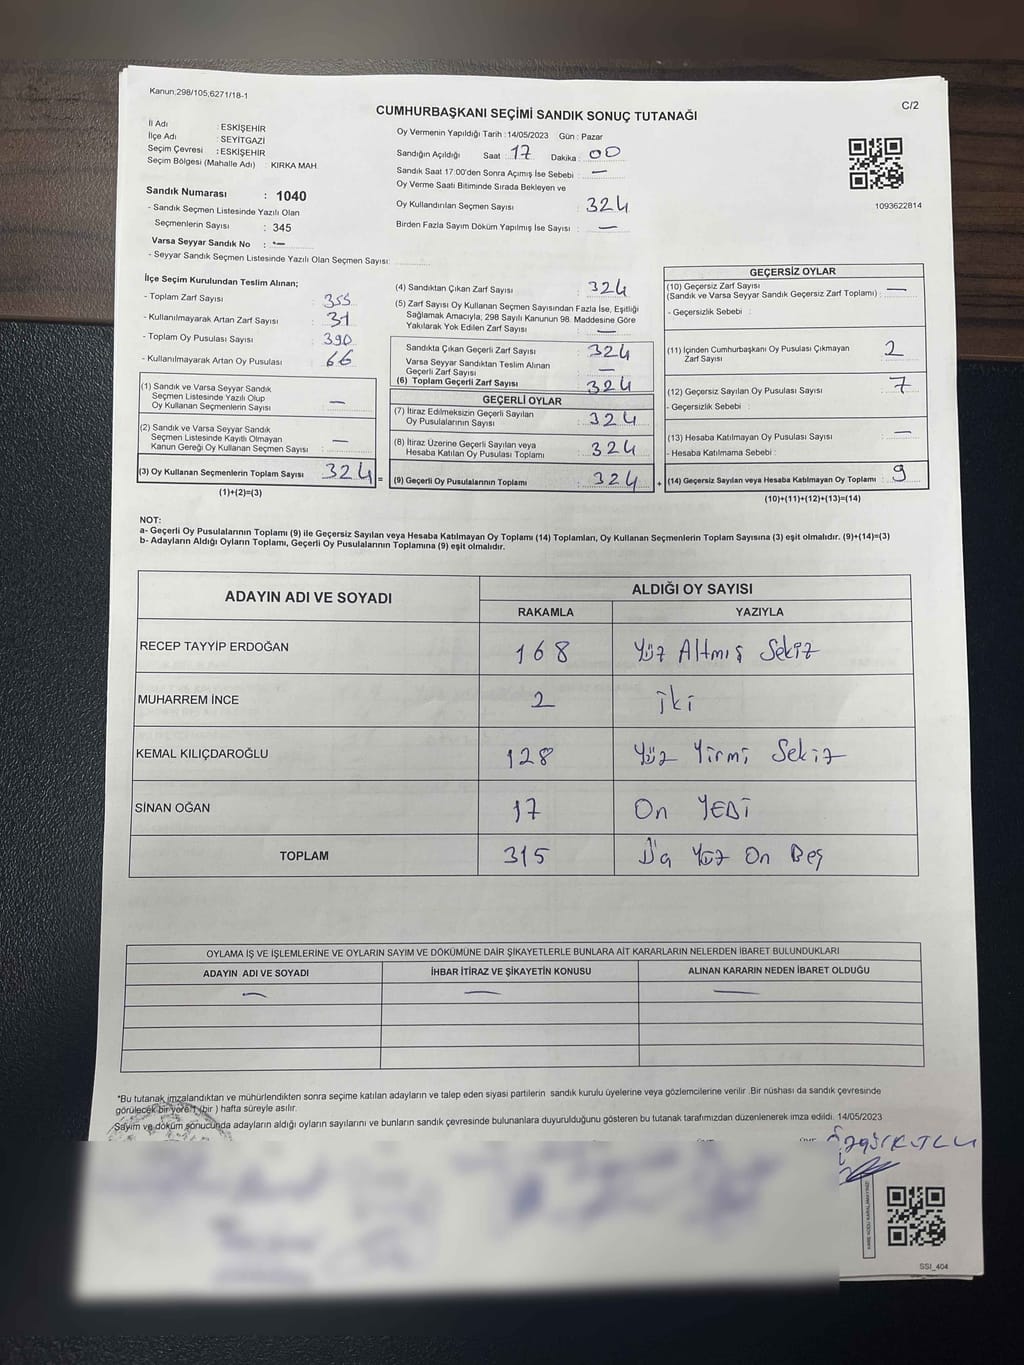 Kanun:298/105,6271/18-1
C/2
CUMHURBAŞKANI SEÇİMİ SANDIK SONUÇ TUTANAĞI
İl Adı : ESKİŞEHİR
İlçe Adı : SEYİTGAZİ
Seçim Çevresi : ESKİŞEHİR
Seçim Bölgesi (Mahalle Adı) : KIRKA MAH.
Sandık Numarası : 1040
- Sandık Seçmen Listesinde Yazılı Olan
Seçmenlerin Sayısı : 345
Varsa Seyyar Sandık No : -
- Seyyar Sandık Seçmen Listesinde Yazılı Olan Seçmen Sayısı:
Oy Vermenin Yapıldığı Tarih : 14/05/2023 Gün : Pazar
Sandığın Açıldığı Saat : 17 Dakika : 00
Sandık Saat 17:00'den Sonra Açımış İse Sebebi : -
Oy Verme Saati Bitiminde Sırada Bekleyen ve
Oy Kullandırılan Seçmen Sayısı : 324
Birden Fazla Sayım Döküm Yapılmış İse Sayısı : -
1093622814
İlçe Seçim Kurulundan Teslim Alınan;
- Toplam Zarf Sayısı : 355
- Kullanılmayarak Artan Zarf Sayısı : 31
- Toplam Oy Pusulası Sayısı : 390
- Kullanılmayarak Artan Oy Pusulası : 66
(1) Sandık ve Varsa Seyyar Sandık
Seçmen Listesinde Yazılı Olup
Oy Kullanan Seçmenlerin Sayısı : -
(2) Sandık ve Varsa Seyyar Sandık
Seçmen Listesinde Kayıtlı Olmayan
Kanun Gereği Oy Kullanan Seçmen Sayısı : -
(3) Oy Kullanan Seçmenlerin Toplam Sayısı : 324 =
(1)+(2)=(3)
(4) Sandıktan Çıkan Zarf Sayısı : 324
(5) Zarf Sayısı Oy Kullanan Seçmen Sayısından Fazla İse, Eşitliği
Sağlamak Amacıyla, 298 Sayılı Kanunun 98. Maddesine Göre
Yakılarak Yok Edilen Zarf Sayısı : -
Sandıkta Çıkan Geçerli Zarf Sayısı : 324
Varsa Seyyar Sandıktan Teslim Alınan
Geçerli Zarf Sayısı : -
(6) Toplam Geçerli Zarf Sayısı : 324
GEÇERLİ OYLAR
(7) İtiraz Edilmeksizin Geçerli Sayılan
Oy Pusulalarının Sayısı : 324
(8) İtiraz Üzerine Geçerli Sayılan veya
Hesaba Katılan Oy Pusulası Toplamı : 324
(9) Geçerli Oy Pusulalarının Toplamı : 324 +
GEÇERSİZ OYLAR
(10) Geçersiz Zarf Sayısı
(Sandık ve Varsa Seyyar Sandık Geçersiz Zarf Toplamı) : -
- Geçersizlik Sebebi :
(11) İçinden Cumhurbaşkanı Oy Pusulası Çıkmayan
Zarf Sayısı : 2
(12) Geçersiz Sayılan Oy Pusulası Sayısı : 7
- Geçersizlik Sebebi :
(13) Hesaba Katılmayan Oy Pusulası Sayısı : -
- Hesaba Katılmama Sebebi :
(14) Geçersiz Sayılan veya Hesaba Katılmayan Oy Toplamı : 9
(10)+(11)+(12)+(13)=(14)
NOT:
a- Geçerli Oy Pusulalarının Toplamı (9) ile Geçersiz Sayılan veya Hesaba Katılmayan Oy Toplamı (14) Toplamları, Oy Kullanan Seçmenlerin Toplam Sayısına (3) eşit olmalıdır. (9)+(14)=(3)
b- Adayların Aldığı Oyların Toplamı, Geçerli Oy Pusulalarının Toplamına (9) eşit olmalıdır.
ADAYIN ADI VE SOYADI ALDIĞI OY SAYISI
RAKAMLA YAZIYLA
RECEP TAYYİP ERDOĞAN 168 Yüz Altmış Sekiz
MUHARREM İNCE 2 iki
KEMAL KILIÇDAROĞLU 128 Yüz Yirmi Sekiz
SİNAN OĞAN 17 On YEDİ
TOPLAM 315 Yüz On Beş
OYLAMA İŞ VE İŞLEMLERİNE VE OYLARIN SAYIM VE DÖKÜMÜNE DAİR ŞİKAYETLERLE BUNLARA AİT KARARLARIN NELERDEN İBARET BULUNDUKLARI
ADAYIN ADI VE SOYADI İHBAR İTİRAZ VE ŞİKAYETİN KONUSU ALINAN KARARIN NEDEN İBARET OLDUĞU
- - -
*Bu tutanak imzalandıktan ve mühürlendikten sonra seçime katılan adayların ve talep eden siyasi partilerin sandık kurulu üyelerine veya gözlemcilerine verilir .Bir nüshası da sandık çevresinde
görülecek bir yere 1 (bir ) hafta süreyle asılır.
Sayım ve döküm sonucunda adayların aldığı oyların sayılarını ve bunların sandık çevresinde bulunanlara duyurulduğunu gösteren bu tutanak tarafımızdan düzenlenerek imza edildi. 14/05/2023
SSI_404